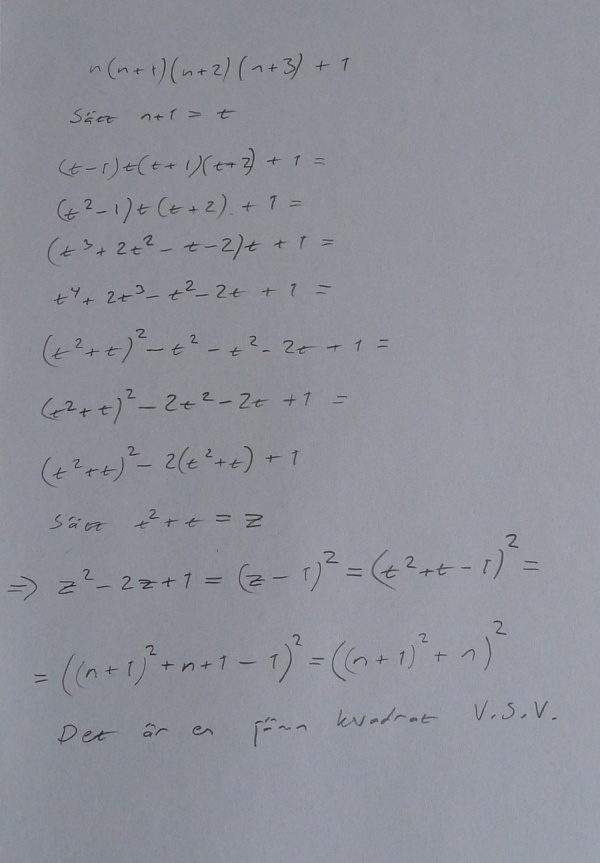 n(n+1)(n+2)(n+3) + 1
Sätt n+1 = t
(t-1)t(t+1)(t+2) + 1 =
(t²-1)t(t+2) + 1 =
(t³+2t²-t-2)t + 1 =
t⁴+2t³-t²-2t + 1 =
(t²+t)²-t²-t²-2t + 1 =
(t²+t)²-2t²-2t +1 =
(t²+t)²-2(t²+t) + 1
Sätt t²+t = z
⇒ z²-2z+1 = (z-1)² = (t²+t-1)² =
= ((n+1)²+n+1-1)² = ((n+1)²+n)²
Det är en jämn kvadrat V.S.V.